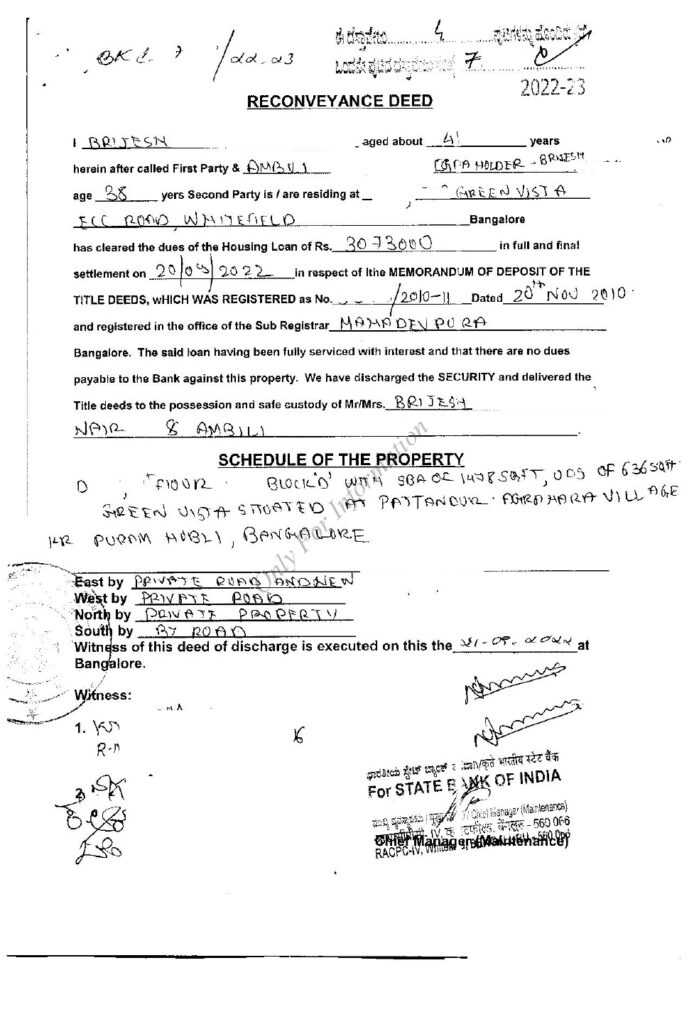 BK 1 7 /22.23
ಈ ದಸ್ತಾವೇಜು 4 ಪುಟಗಳನ್ನು ಹೊಂದಿದೆ
7
2022-23
RECONVEYANCE DEED
I BRIJESH aged about 41 years
herein after called First Party & AMBILI HOLDER - BRIJESH
age 38 yers Second Party is / are residing at GREEN VISTA
ECC ROAD, WHITEFIELD Bangalore
has cleared the dues of the Housing Loan of Rs. 3073000 in full and final
settlement on 20/09/2022 in respect of Ithe MEMORANDUM OF DEPOSIT OF THE
TITLE DEEDS, wHICH WAS REGISTERED as No. /2010-11 Dated 20th NOV 2010.
and registered in the office of the Sub Registrar MAHADEVPURA
Bangalore. The said loan having been fully serviced with interest and that there are no dues
payable to the Bank against this property. We have discharged the SECURITY and delivered the
Title deeds to the possession and safe custody of Mr/Mrs. BRIJESH
NAIR & AMBILI
SCHEDULE OF THE PROPERTY
D , FLOOR BLOCK 'D' WITH SBA OF 1478 SQFT, UDS OF 636 SQFT
GREEN VISTA SITUATED AT PATTANDUR AGRAHARA VILLAGE
KR PURAM HOBLI, BANGALORE
Only For Information
East by PRIVATE ROAD AND NEW
West by PRIVATE ROAD
North by PRIVATE PROPERTY
South by BY ROAD
Witness of this deed of discharge is executed on this the 21-09-2022 at
Bangalore.
Witness:
1.
2.
ಭಾರತೀಯ ಸ್ಟೇಟ್ ಬ್ಯಾಂಕ್ कृते भारतीय स्टेट बैंक
For STATE BANK OF INDIA
Chief Manager (Maintenance)
बेंगलूरु - 560 066
Chief Manager (Maintenance)
RACPC-IV,